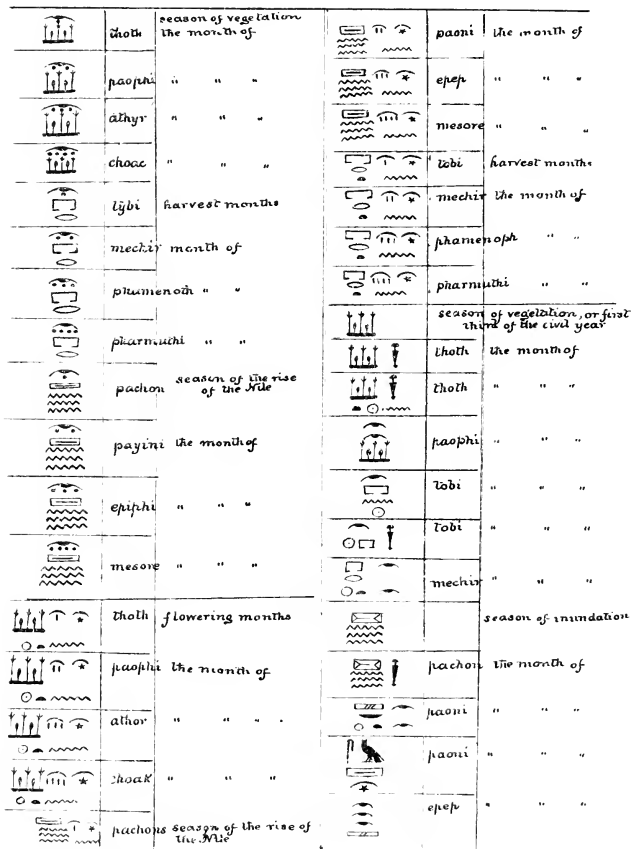 thoth season of vegetation
the month of
paophi " " "
athyr " " "
choac " " "
tybi harvest months
mechir month of
phamenoth " "
pharmuthi " "
pachon season of the rise
of the Nile
payini the month of
epiphi " " "
mesore " " "
thoth flowering months
paophi the month of
athor " " " "
choak " " "
pachons season of the rise of
the Nile
paoni the month of
epep " " "
mesore " " "
tobi harvest months
mechir the month of
phamenoph " "
pharmuthi " "
season of vegetation, or first
third of the civil year
thoth the month of
thoth " " "
paophi " " "
tobi " " "
tobi " " "
mechir " " "
season of inundation
pachon the month of
paoni " " "
paoni " " "
epep " " "